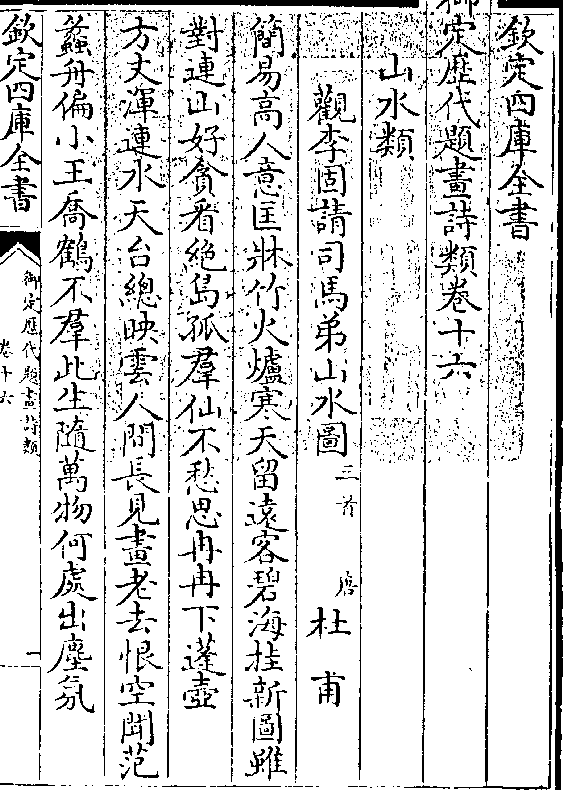 欽定四庫全書
御定歴代題畫詩類卷十六
山水類
觀李固請司馬弟山水圖 三首 唐 杜甫
簡易高人意匡牀竹火爐寒天留遠客碧海挂新圖雖
對連山好貪看絶島孤羣仙不愁思冉冉下蓬壺
方丈渾連水天台總映雲人間長見畫老去恨空聞范
蠡舟偏小王喬鶴不羣此生隨萬物何處出塵氛
欽定四庫全書
御定歴代題畫詩類
卷十六
一